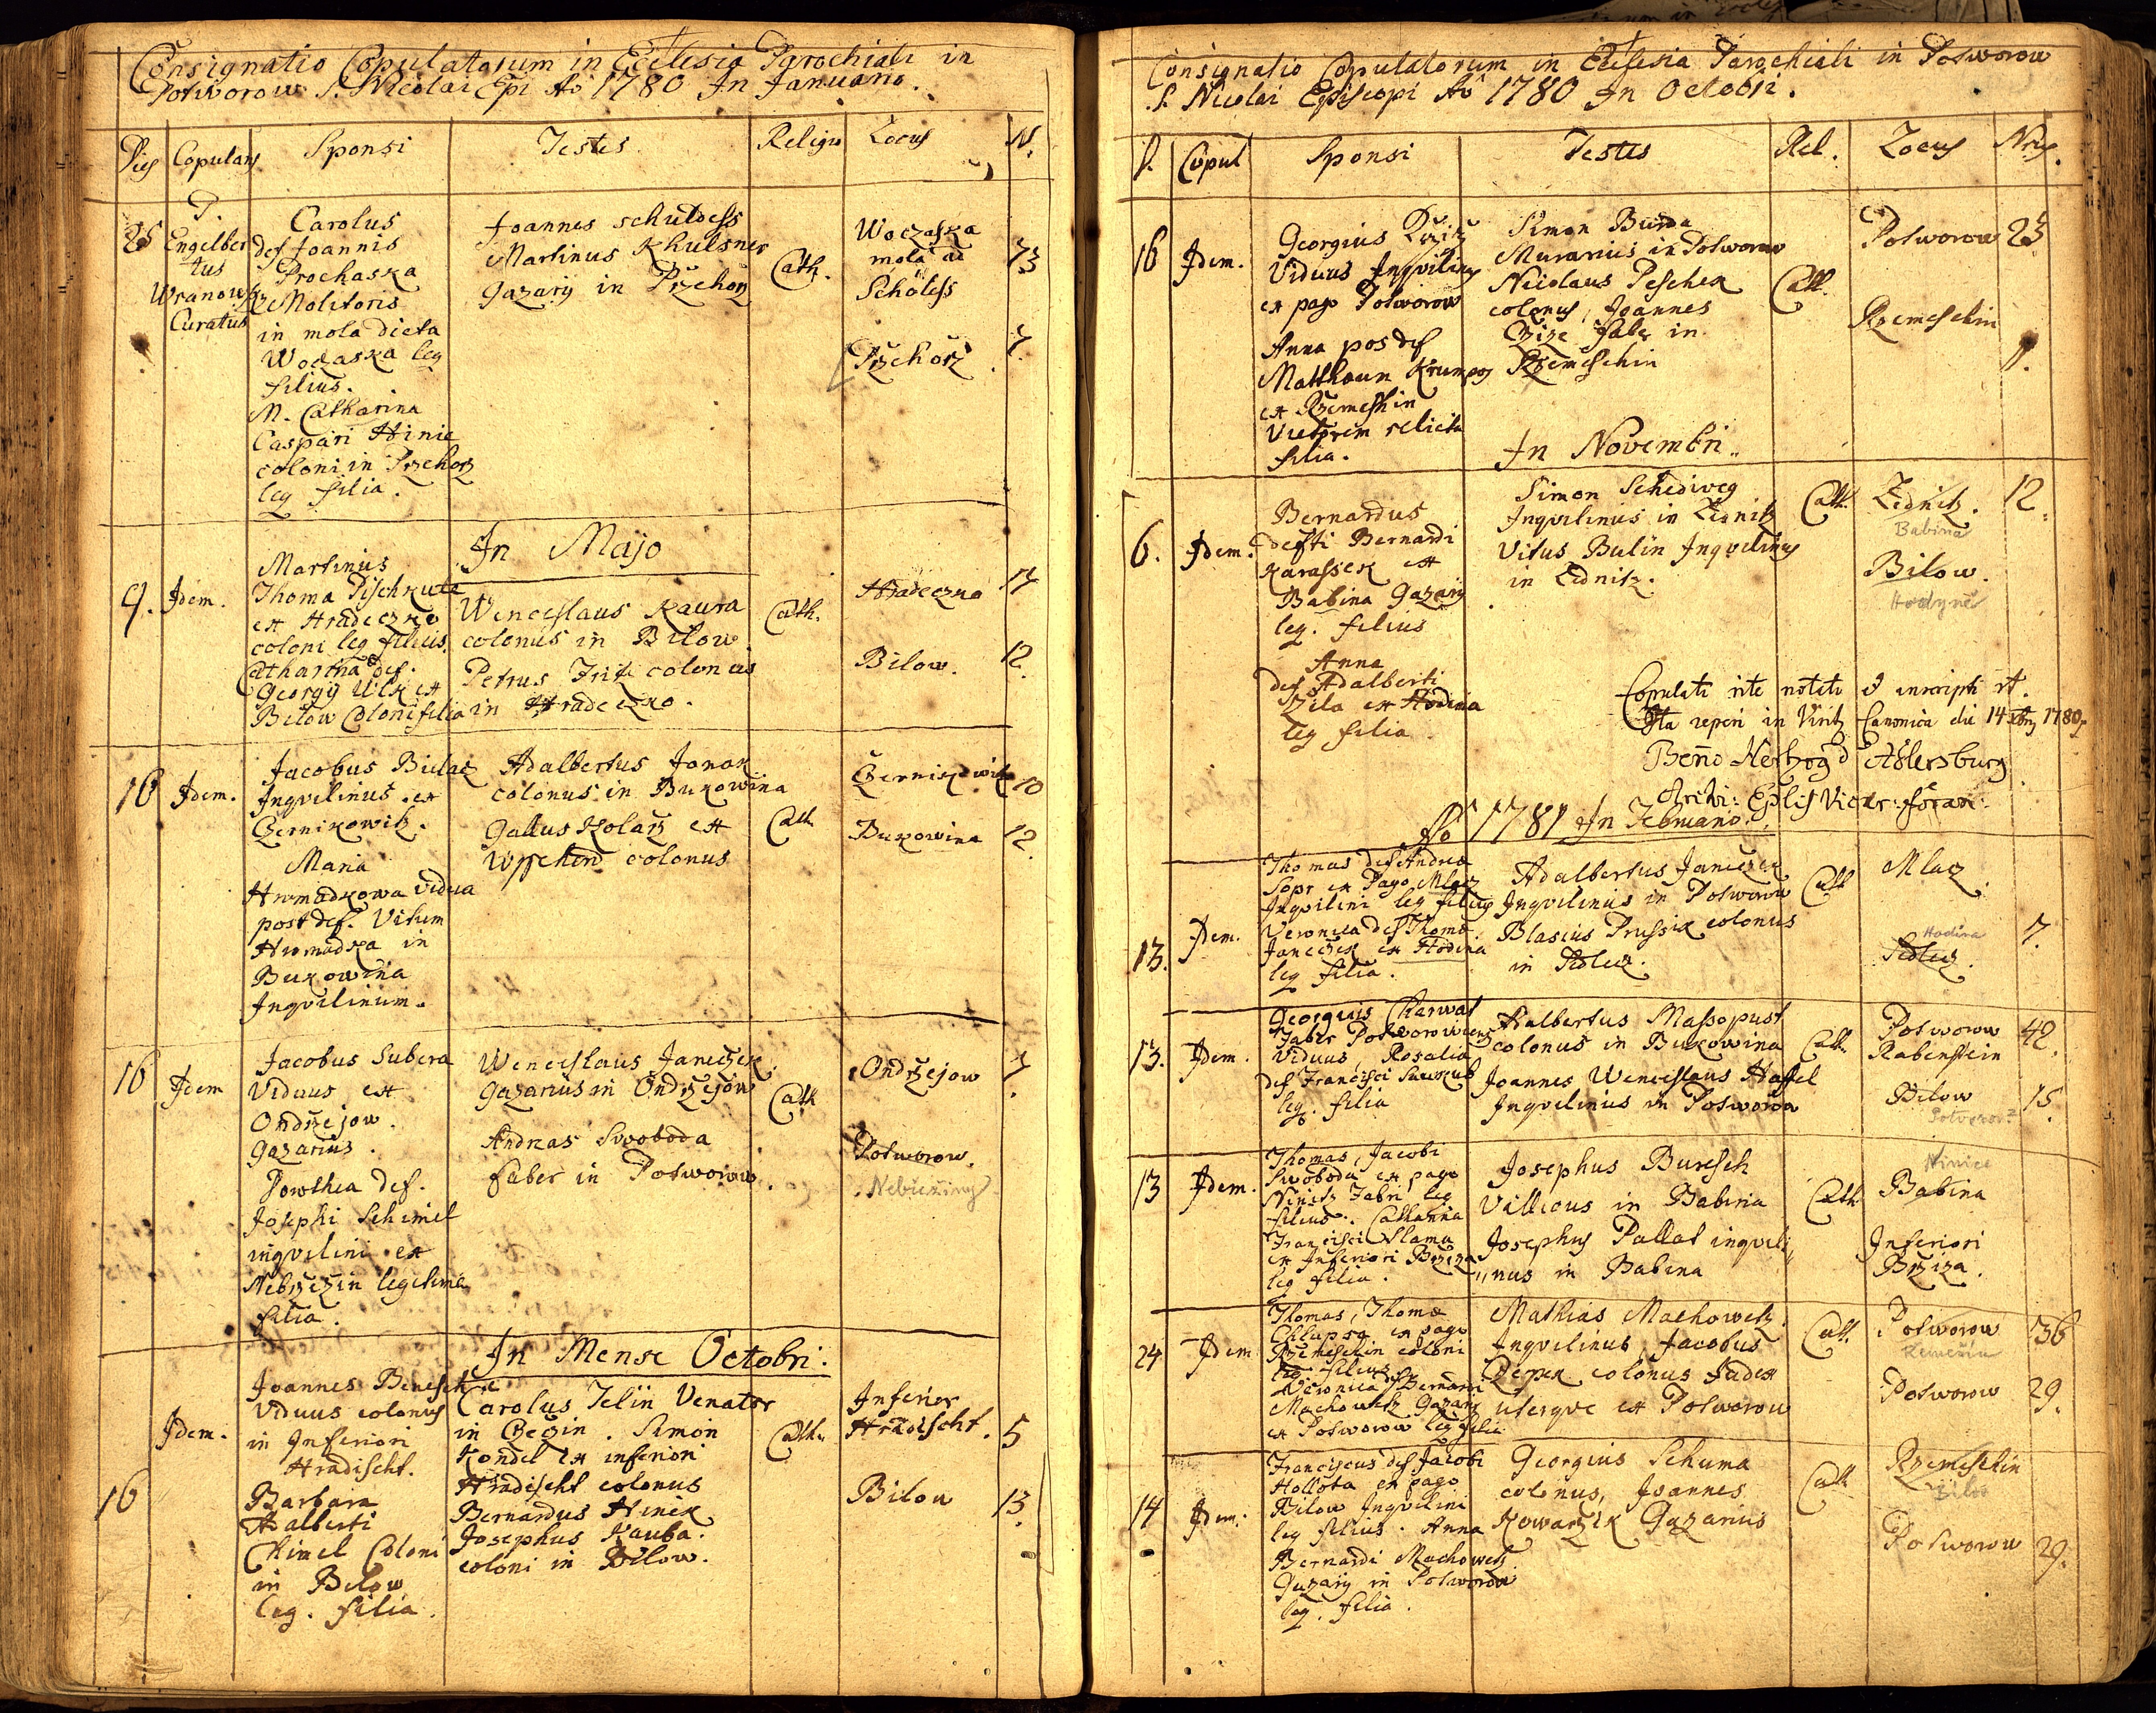 Consignatio Copulatorum in Ecclesia Parochiali in
Potworow S. Nicolai Epi Ao 1780 In Januario.
Dies Copulans Sponsi Testes Religio Locus N.
25
P.
Engelber
tus
Wranowsky
Curatus
Carolus
def Joannis
Prochaska
Molitoris
in mola dicta
Woczaska leg
filius.
M. Catharina
Caspari Hinie
coloni in Przehorz
leg filia.
Joannes schuldess
Martinus Khulsner
gazarij in Przehorz
Cath.
Woczaska
mola ad
Scholess
73
Przehorz
7.
In Majo
9. Idem.
Martinus
Thoma Pischkute
ex Hradeczko
coloni leg filius.
Catharina def.
Georgij Ulk ex
Bilow Coloni filia
Wenceslaus Kaura
colonus in Bilow
Petrus Frit colonus
in Hradeczko.
Cath.
Hradeczno 17
Bilow. 12.
16 Idem.
Jacobus Bulaz
Inqvilinus ex
Czernikowitz.
Maria
Hromadkowa vidua
post def. Vitum
Hromadka in
Bukowina
Inqvilinum.
Adalbertus Janak
colonus in Bukowina
Gallus Kolarz ex
Wpschend colonus
Cath
Czernikowitz 10
Bukowina 12.
16 Idem
Jacobus Subera
Viduus ex
Ondrzejow.
gazarius.
Dorothea def.
Josephi Schimel
inqvilini ex
Nebrzezin legitima
filia.
Wenceslaus Janeczek
gazarius in Ondrzejow
Andreas Swoboda
faber in Potworow.
Cath
Ondrzejow 7.
Potworow.
Nebřeziny
In Mense Octobri.
16 Idem.
Joannes Benesch
Viduus colonus
in Inferiori
Hradischt.
Barbara
Adalberti
Chimel Coloni
in Bilow
leg. filia.
Carolus Jelin Venator
in Czezin. Simon
Kondel ex inferiori
Hradischt colonus
Bernardus Hinek
Josephus Kauba.
coloni in Bilow.
Cath.
Inferior
Hradischt. 5
Bilow 13.
Consignatio Copulatorum in Ecclesia Parochiali in Potworow
S. Nicolai Episcopi Ao 1780 In Octobri.
D. Copul Sponsi Testes Rel. Locus Nrus.
16 Idem.
Georgius Krziz
Viduus Inqvilinus
ex pago Potworow
Anna pos def
Matthaum Krumpos
ex Rzemeschin
Victorem relicta
filia.
Simon Burda
Murarius in Potworow
Nicolaus Peschek
colonus, Joannes
Czize faber in
Rzemeschin
Cath.
Potworow 25
Rzemeschin
1.
In Novembri.
6. Idem.
Bernardus
defti Bernardi
Karassek ex
Babina Gazarij
leg. filius
Anna
def Adalberti
Zila ex Hodina
leg filia
Simon Schediweg
Inqvilinus in Zidnitz
Vitus Bulin Inqvilinus
in Zidnitz.
Cath.
Zidnitz. 12.
Babina
Bilow.
Hodyně
Copulati rite notati et inscripti st.
Ita reperi in Visit Canonica die 14 xbris 1780
Benno Herzog d Adlersburg
Archi: Eplis Vicar: foran:
Ao 1781 In Februario.
13. Idem.
Thomas def Andrea
Sopr ex Pago Mlaz
Inqvilini leg filius
Veronica def Thoma
Janeczek ex Hodina
leg filia.
Adalbertus Janeczek
Inqvilinus in Potworow
Blasius Prussik colonus
in Sedlez.
Cath
Mlaz
Hodina
Sedlez. 7.
13. Idem.
Georgius Charwat
Faber Potworowiens
Viduus, Rosalia
def Francisci Saukub
leg. filia
Adalbertus Massopust
colonus in Bukowina
Joannes Wenceslaus Hassel
Inqvilinus in Potworow
Cath.
Potworow 42.
Rabenstein
Bilow 15.
Potvorov?
13 Idem.
Thomas, Jacobi
Swoboda ex pago
Ninitz Fabri leg
filius. Catharina
Francisci Slama
ex Inferiori Brziza
leg filia.
Josephus Buresch
Villicus in Babina
Josephus Pallat inqvili
nus in Babina
Cath.
Ninice
Babina
Inferiori
Brziza.
24 Idem
Thomas, Thoma
Chlupsa ex pago
Rzemeschin coloni
leg. filius
Veronica Bernardi
Machowetz Gazarij
ex Potworow leg filia
Mathias Machowetz.
Inqvilinus, Jacobus
Rzepek colonus Judex
uterqve ex Potworow
Cath.
Potworow 36
Řemešín
Potworow 29.
14 Idem.
Franciscus def Jacobi
Hollota ex pago
Bilow Inqvilini
leg filius. Anna
Bernardi Machowetz
Gazarij in Potworow
leg. filia.
Georgius Schuma
colonus, Joannes
Kowarzik Gazarius
Cath
Rzemeschin
Bilov
Potworow 29.